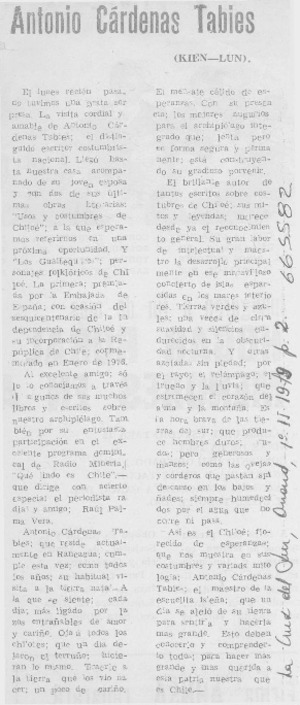 Antonio Cárdenas Tabies
(KIEN—LUN).
El lunes recién pasa-
do tuvimos una grata sor
presa. La visita cordial y
amable de Antonio Cár-
denas Tabies; el distin-
guido escritor costumbris
ta nacional. Llegó has-
ta nuestra casa acompa-
ñado de su joven esposa
y con dos de sus últi-
mas obras literarias:
"Usos y costumbres de
Chiloé"; a la que espera-
mos referirnos en una
próxima oportunidad. Y
"Los Gualtequines"; per-
sonajes folklóricos de Chi
loé. La primera; premia-
da por la Embajada de
España; con ocasión del
sesquicentenario de la In
dependencia de Chiloé y
su incorporación a la Re-
pública de Chile; conme-
morado en Enero de 1976.
Al excelente amigo; só
lo lo conocíamos a través
de algunos de sus muchos
libros y escritos sobre
nuestro archipiélago. Tam
bién por su entusiasta
participación en el ex-
celente programa domini-
cal de Radio Minería;
"Qué lindo es Chile"—
que dirige con acierto
especial el periodista ra
dial y amigo; Raúl Pal-
ma Vera.
Antonio Cárdenas Ta-
bies; que reside actual-
mente en Rancagua; cum-
plía esta vez; como todos
los años; su habitual vi-
sita a la tierra nata'. A
la que se siente; cada
día; más ligado por la
sus entrañables de amor
y cariño. Ojalá todos los
chilotes; que un día de-
jaron el terruño; hicie-
ran lo mismo. Traerle a
la tierra que los vio na-
cer; un poco de cariño,
El mensaje cálido de es-
peranzas. Con su presen
cia; los mejores augurios
para el archipiélago in-
tegrado que; lenta pero
en forma segura y perma
nente; está construyen-
do su grandioso porvenir.
El brillante autor de
tantos escritos sobre cos-
tumbres de Chiloé; sus mi
tos y leyendas; merece
desde ya el reconocimien
to general. Su gran labor
de intelectual y maes-
tro la desarrolla principal
mente en ese maravilloso
concierto de islas espar-
cidas en los mares interio
res. Tierras verdes y azu-
les; una veces de cierta
suavidad y silencios en-
durecidos en la obscuri-
dad nocturna. Y otras
azotadas sin piedad; por
el rayo; el relámpago; el
trueno y la lluvia; que
estremecen el corazón del
alma y la montaña. Es
la hora brava de las tie-
rras del sur; que produ-
ce hombres duros; ru-
dos; pero generosos y
mansos; como las ovejas
y corderos que pastan asi
decasto en los bajos y
ñadies; siempre humedeci
dos por el agua que no
corre ni pasa.
Así es el Chiloé; flo-
recido de esperanzas;
que nos muestra en sus
costumbres y variada mito
logía; Antonio Cárdenas
Tabies; el maestro de la
escuelita isleña; que un
día se alejó de su tierra
para sentirla y hacerla
más grande. Esto deben
conocerlo y comprender-
lo todos; para hacer más
grande y más querida a
esta patria nuestra que
es Chile.—
665582
La Cruz del Sur, Ancud, 1º-II-1979 p. 2.